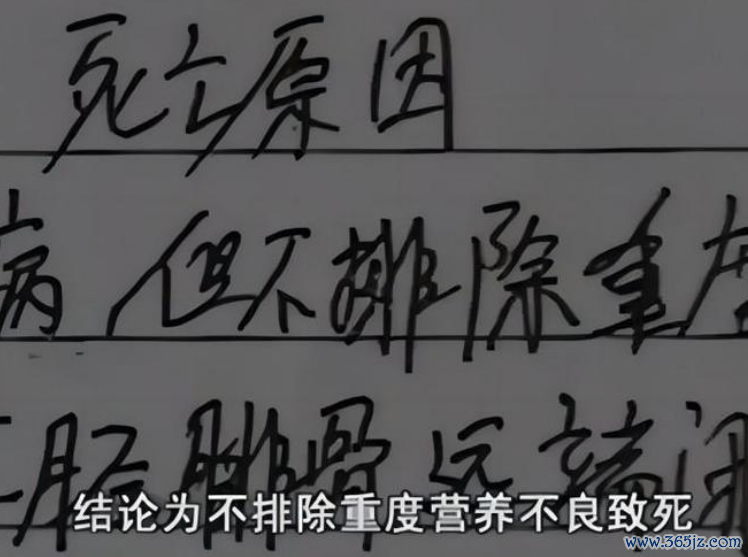 死亡原因
病,但不排除重度
胫腓骨远端闭
结论为不排除重度营养不良致死
www.365jz.com